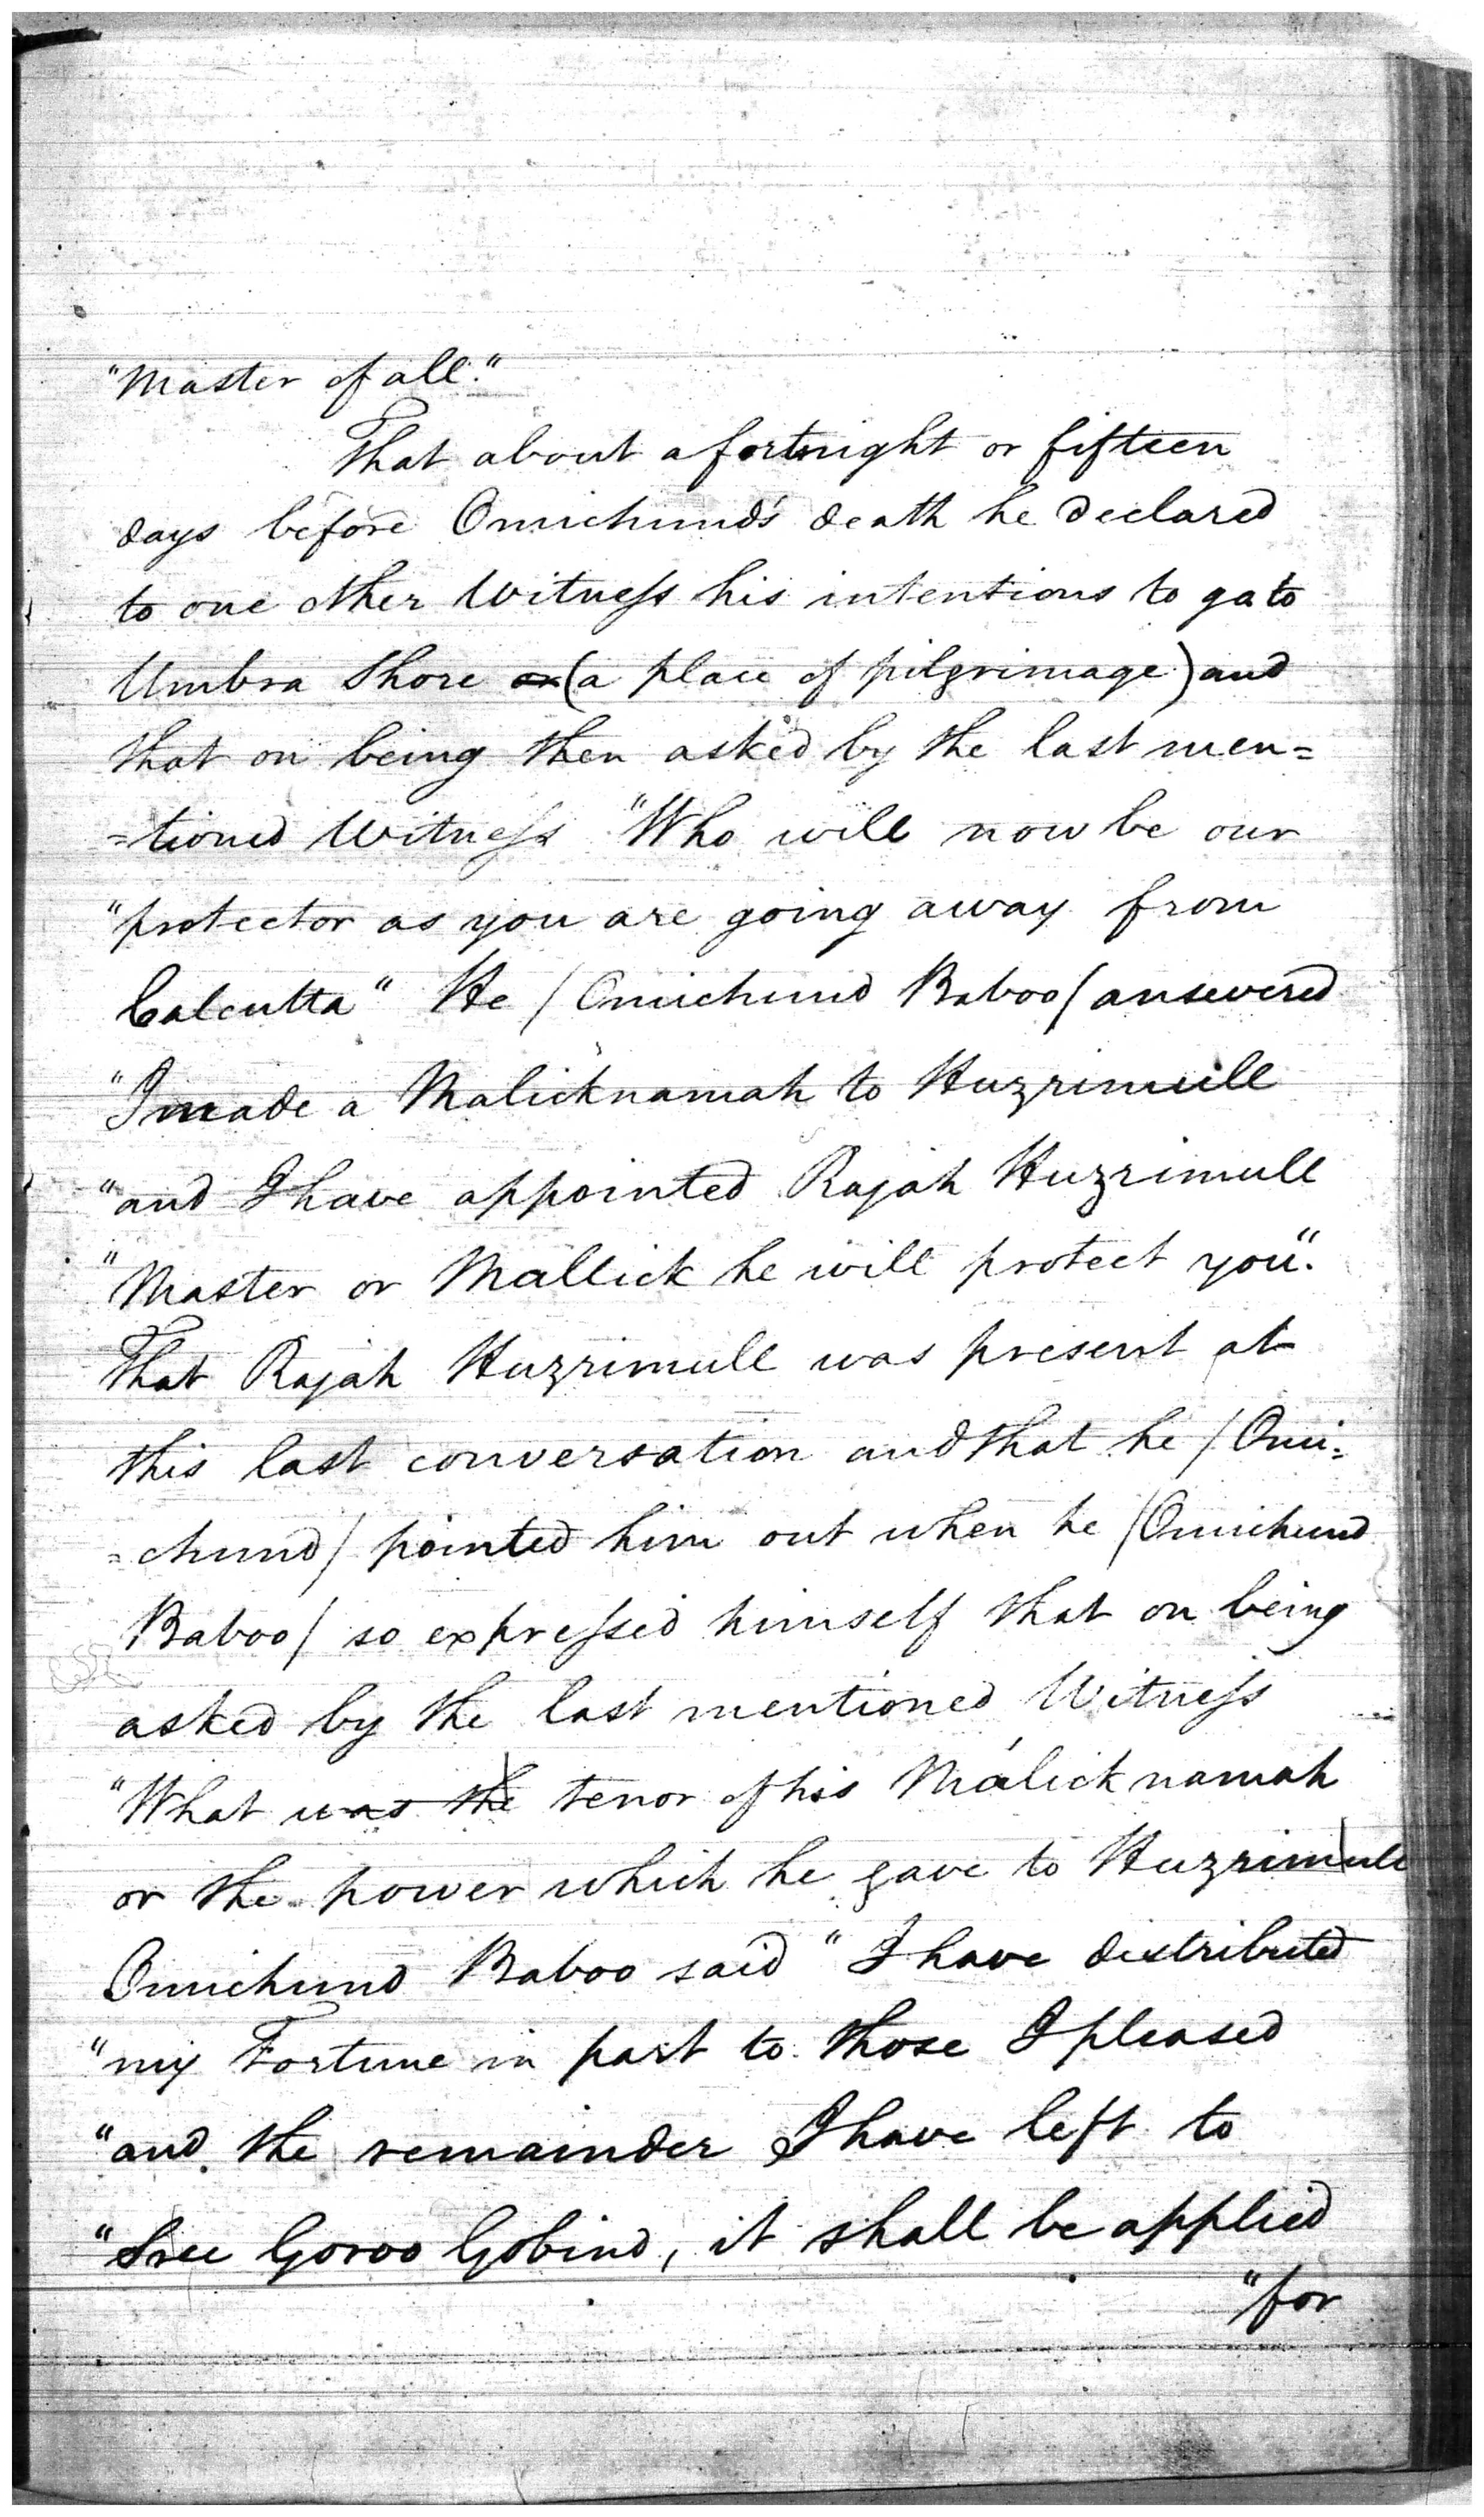 "Master of all."
That about a fortnight or fifteen
days before Omichund's death he declared
to one other Witness his intentions to go to
Umbra Shore (a place of pilgrimage) and
that on being then asked by the last men=
=tioned Witness "Who will now be our
"protector as you are going away from
Calcutta" He / Omichund Baboo / answered
"I made a Malicknamah to Huzrimull
"and I have appointed Rajah Huzrimull
"Master or Mallick he will protect you".
That Rajah Huzrimull was present at
this last conversation and that he / Omi=
=chund / pointed him out when he / Omichund
Baboo / so expressed himself that on being
asked by the last mentioned Witness
"What was the tenor of his Malicknamah
or the power which he gave to Huzrimull
Omichund Baboo said "I have distributed
"my Fortune in part to those I pleased
"and the remainder I have left to
"Sree Goroo Gobind, it shall be applied
"for